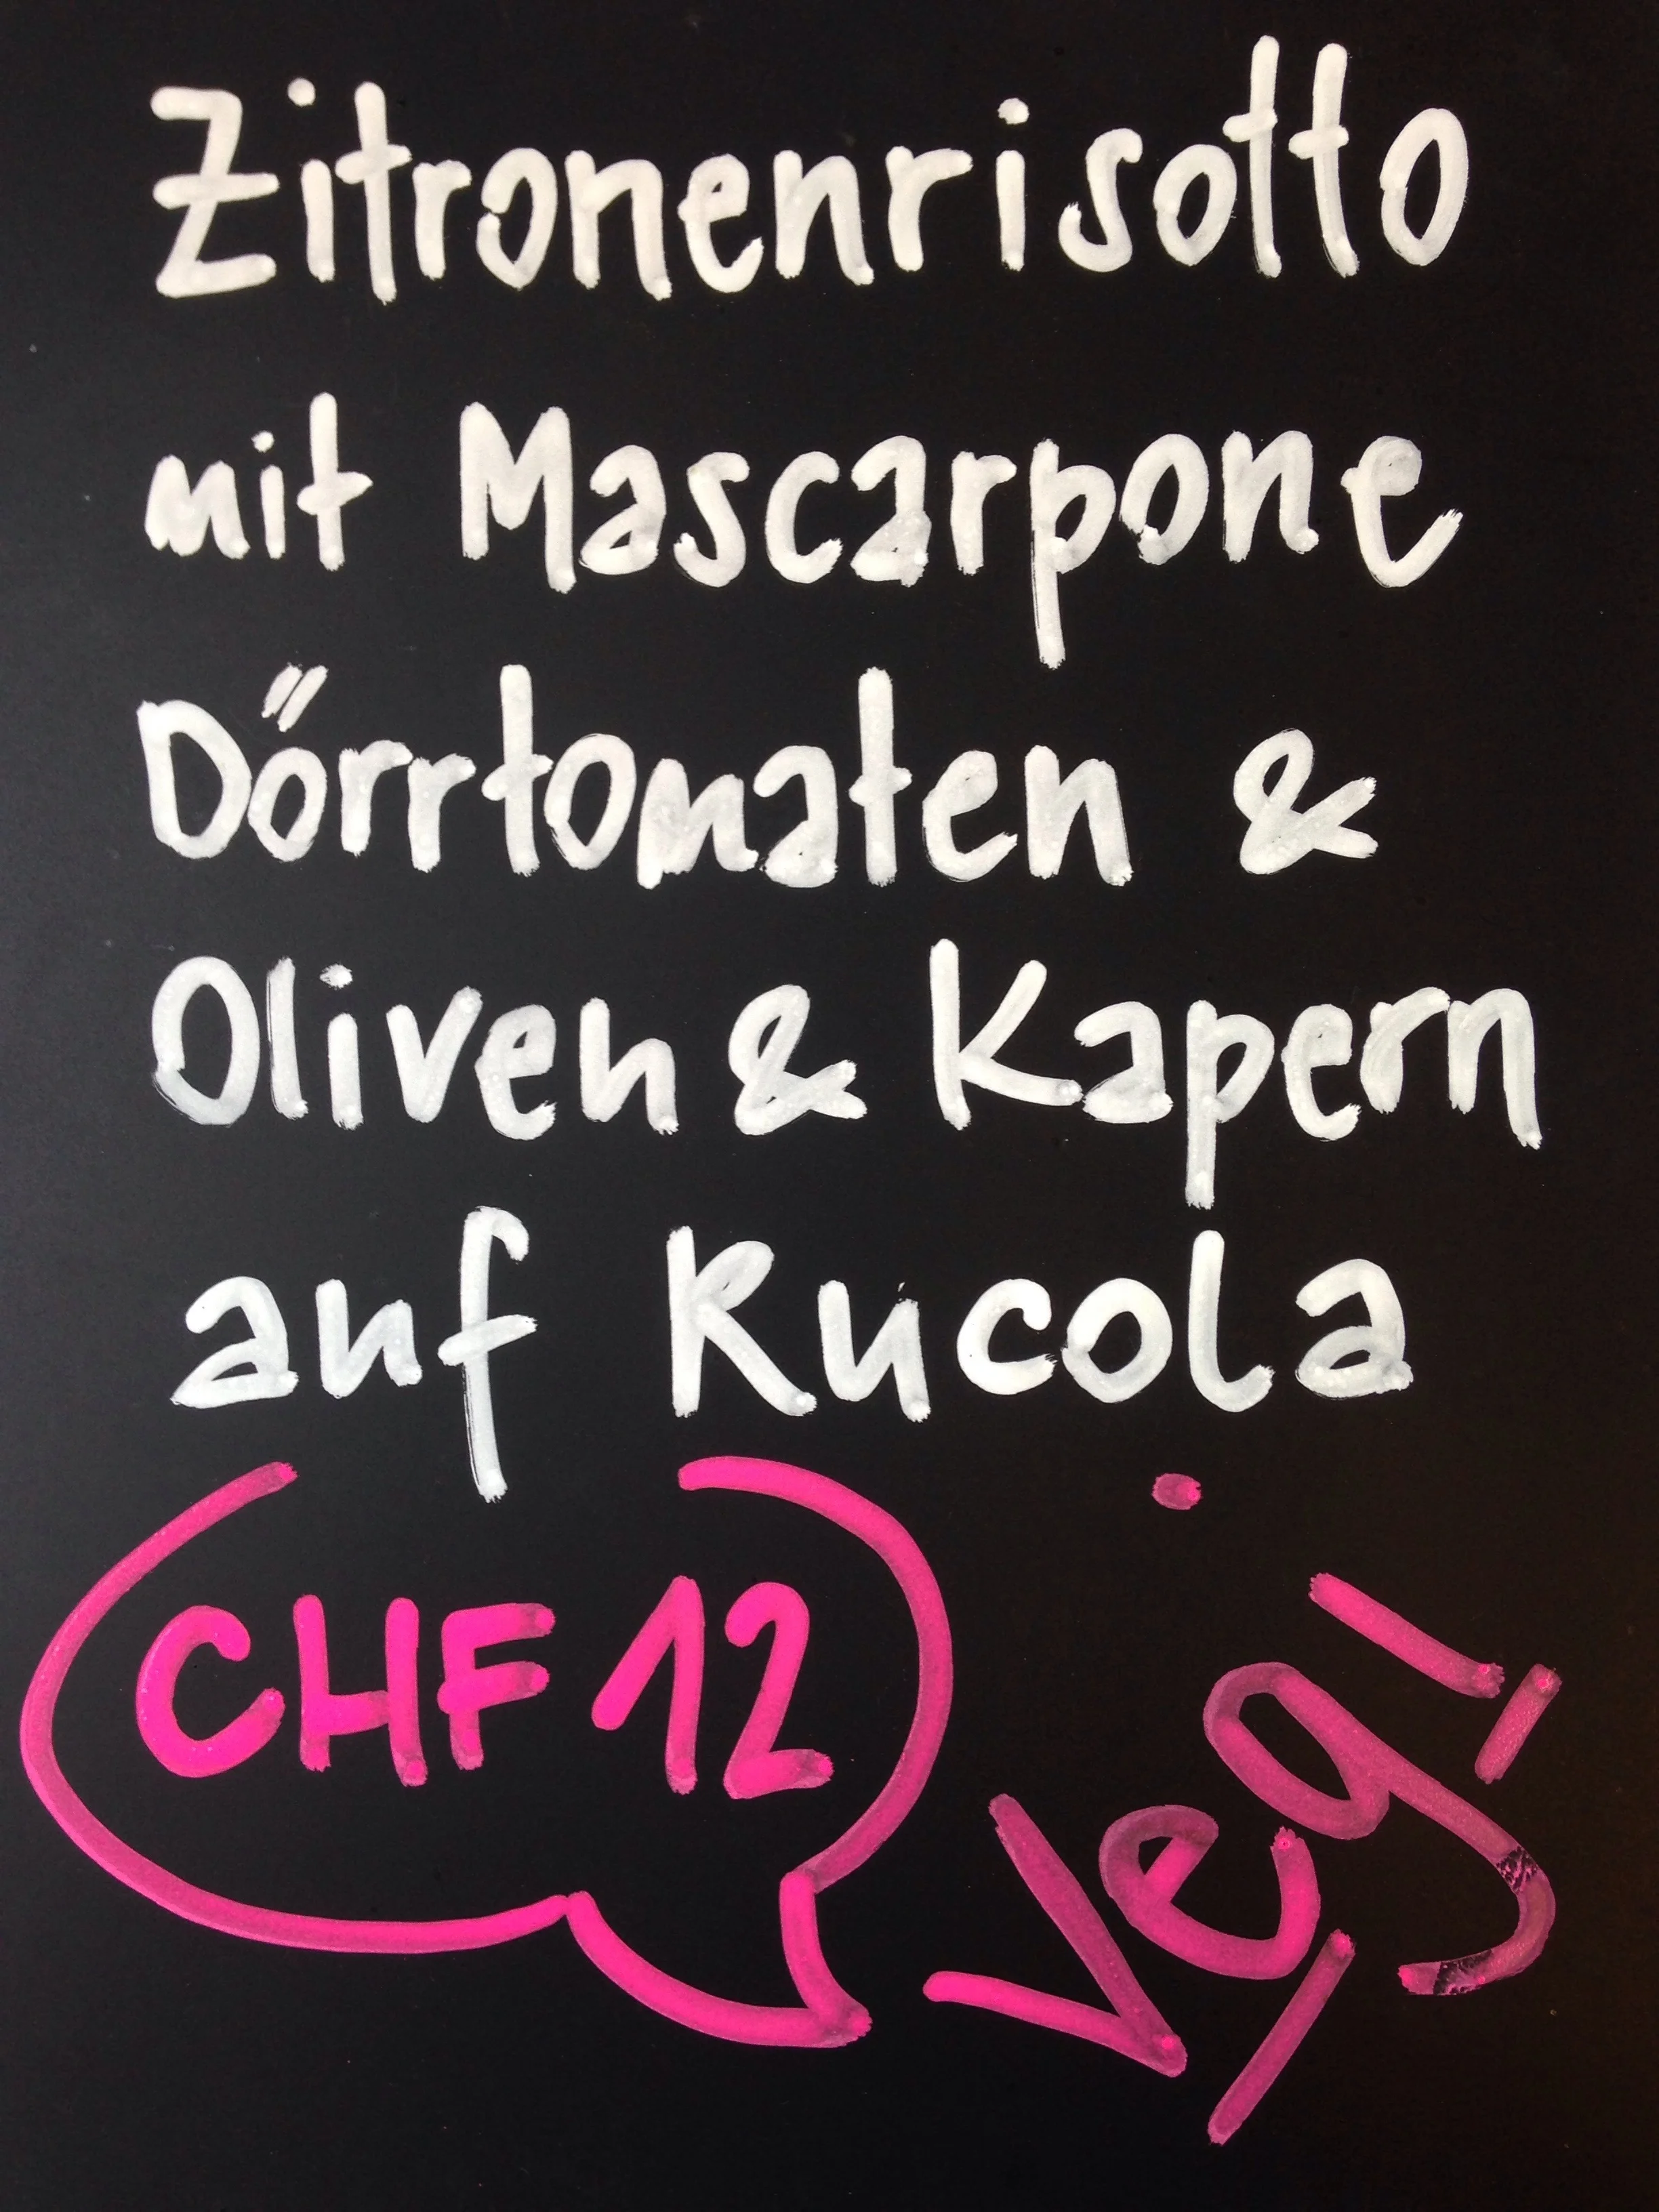 Zitronenrisotto
mit Mascarpone
Dörrtomaten &
Oliven & Kapern
auf Rucola
CHF 12
Vegi